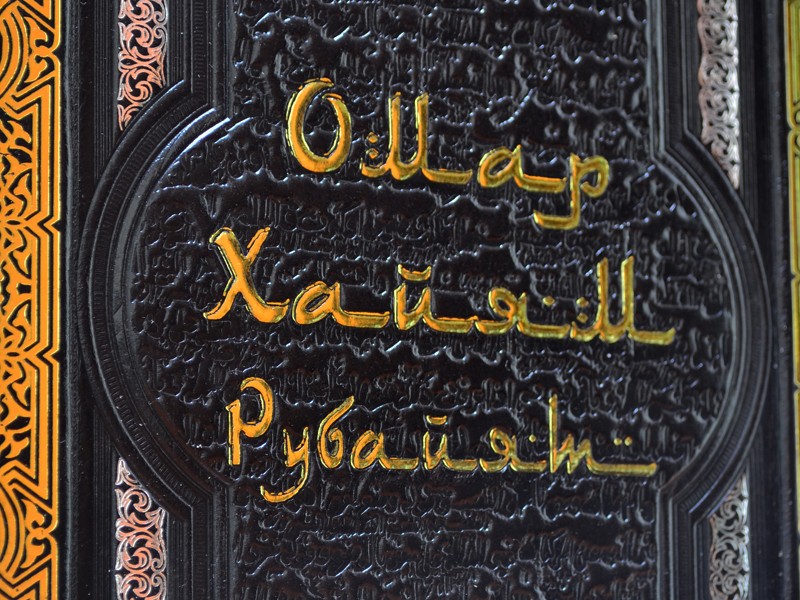 Омар
Хайям
Рубайят